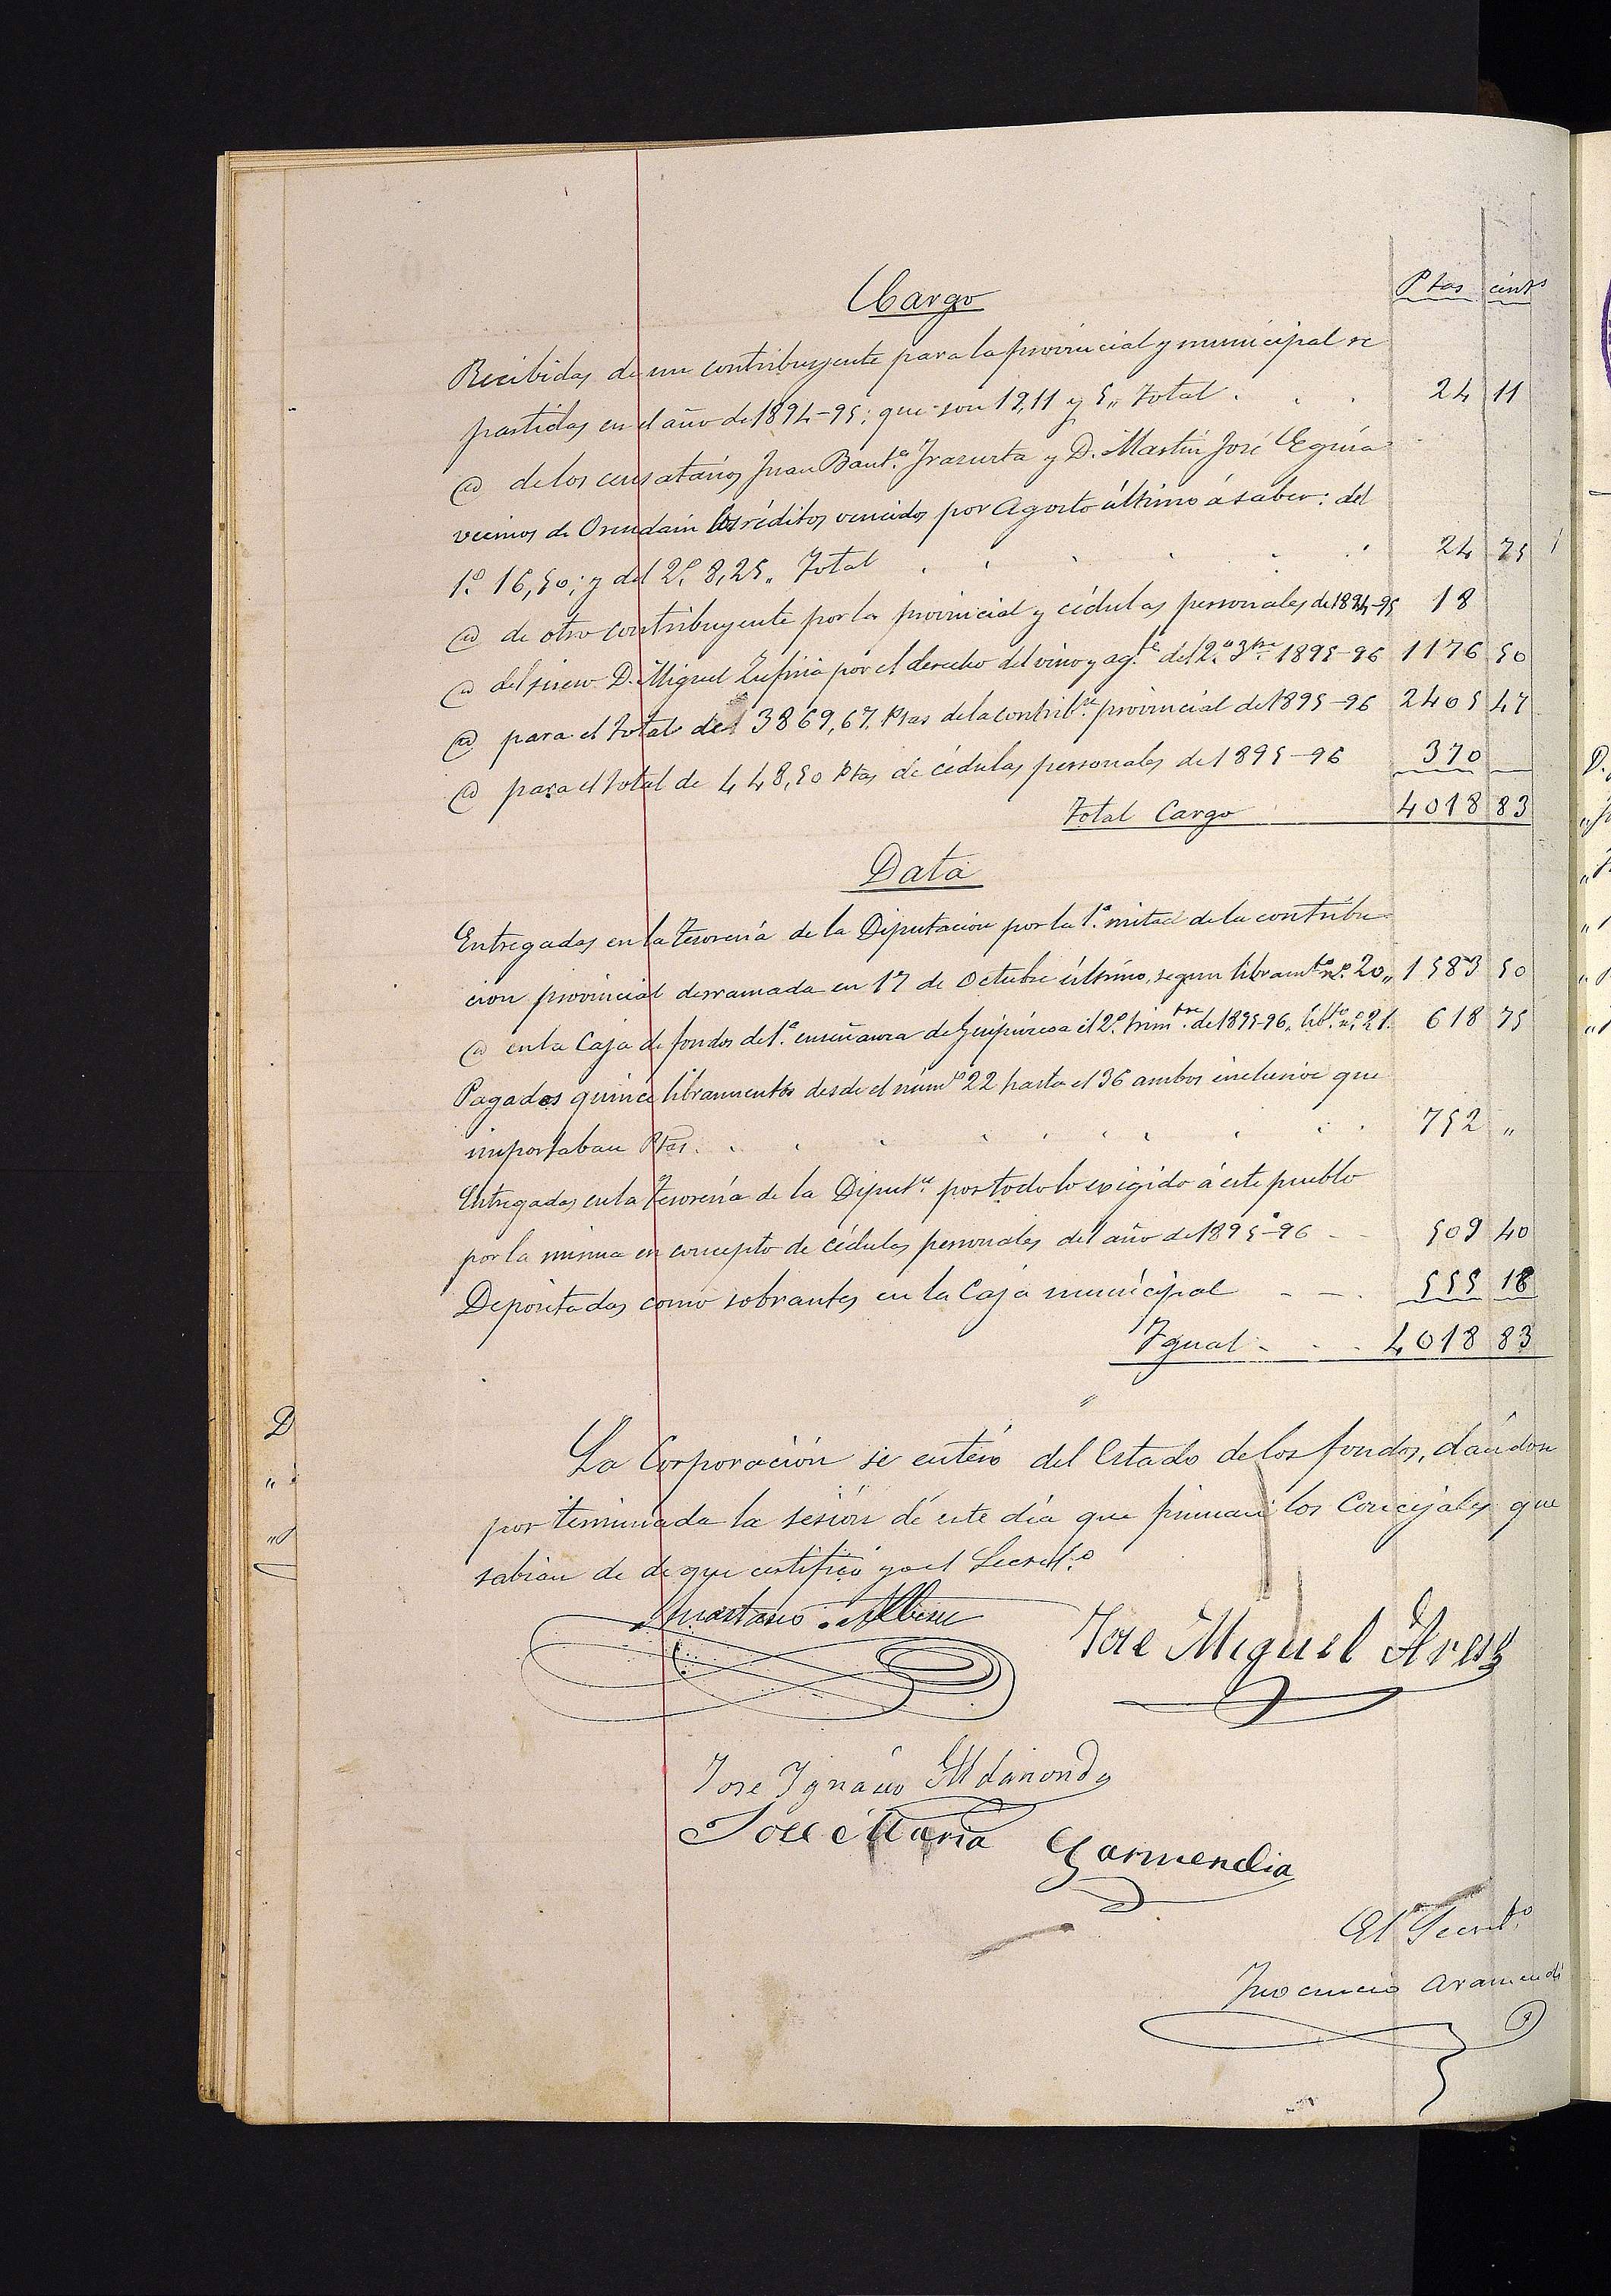 Cargo Ptas cénts
Recibidas de un contribuyente para la provincial y municipal re
partidas en el año de 1894-95; que son 19,11 y 5,, total . . . 24 11
@ de los censatarios Juan Baut.ª Irazusta y D. Martin José Eguía
vecinos de Orendain los réditos vencidos por Agosto último á saber: del
1.º 16,50; y del 2.º 8,25,, Total . . . . . . 24 75
@ de otro contribuyente por la provincial y cédulas personales de 1894-95 18
@ del D. Miguel por el derecho del vino y ag.te del 2.º 3tre 1895-96 1176 50
@ para el total del 3869,67, Ptas de la contrib.ne provincial de 1895-96 2405 47
@ para el total de 448,50 Ptas de cédulas personales de 1895-96 370
Total Cargo 4018 83
Data
Entregadas en la Tesorería de la Diputacion por la 1.ª mitad de la contribu
cion provincial derramada en 17 de Octubre último, segun libram.to n.º 20,, 1583 50
@ en la Caja de fondos de 1.ª enseñanza de Guipúzcoa el 2.º trim.tre de 1895-96,, lib.to n.º 21. 618 75
Pagados quince libramientos desde el núm.º 22 hasta el 36 ambos inclusive que
importaban Ptas. . . . . . . . . . 752 ,,
Entregadas en la Tesorería de la Diput.ne por todo lo exigido á este pueblo
por la misma en concepto de cédulas personales del año de 1895-96 - - 509 40
Depositadas como sobrantes en la Caja municipal - - . 555 18
Igual - . . 4018 83
"
La Corporación se enteró del Estado de los fondos, dándose
por terminada la sesión de este día que firman los Concejales que
sabian de de que certifico yo el Secret.º
Anastasio Albisu
Jose Miguel
Jose Ignacio
Jose Maria Garmendia
El Secret.º
Inocencio Aramendi
D